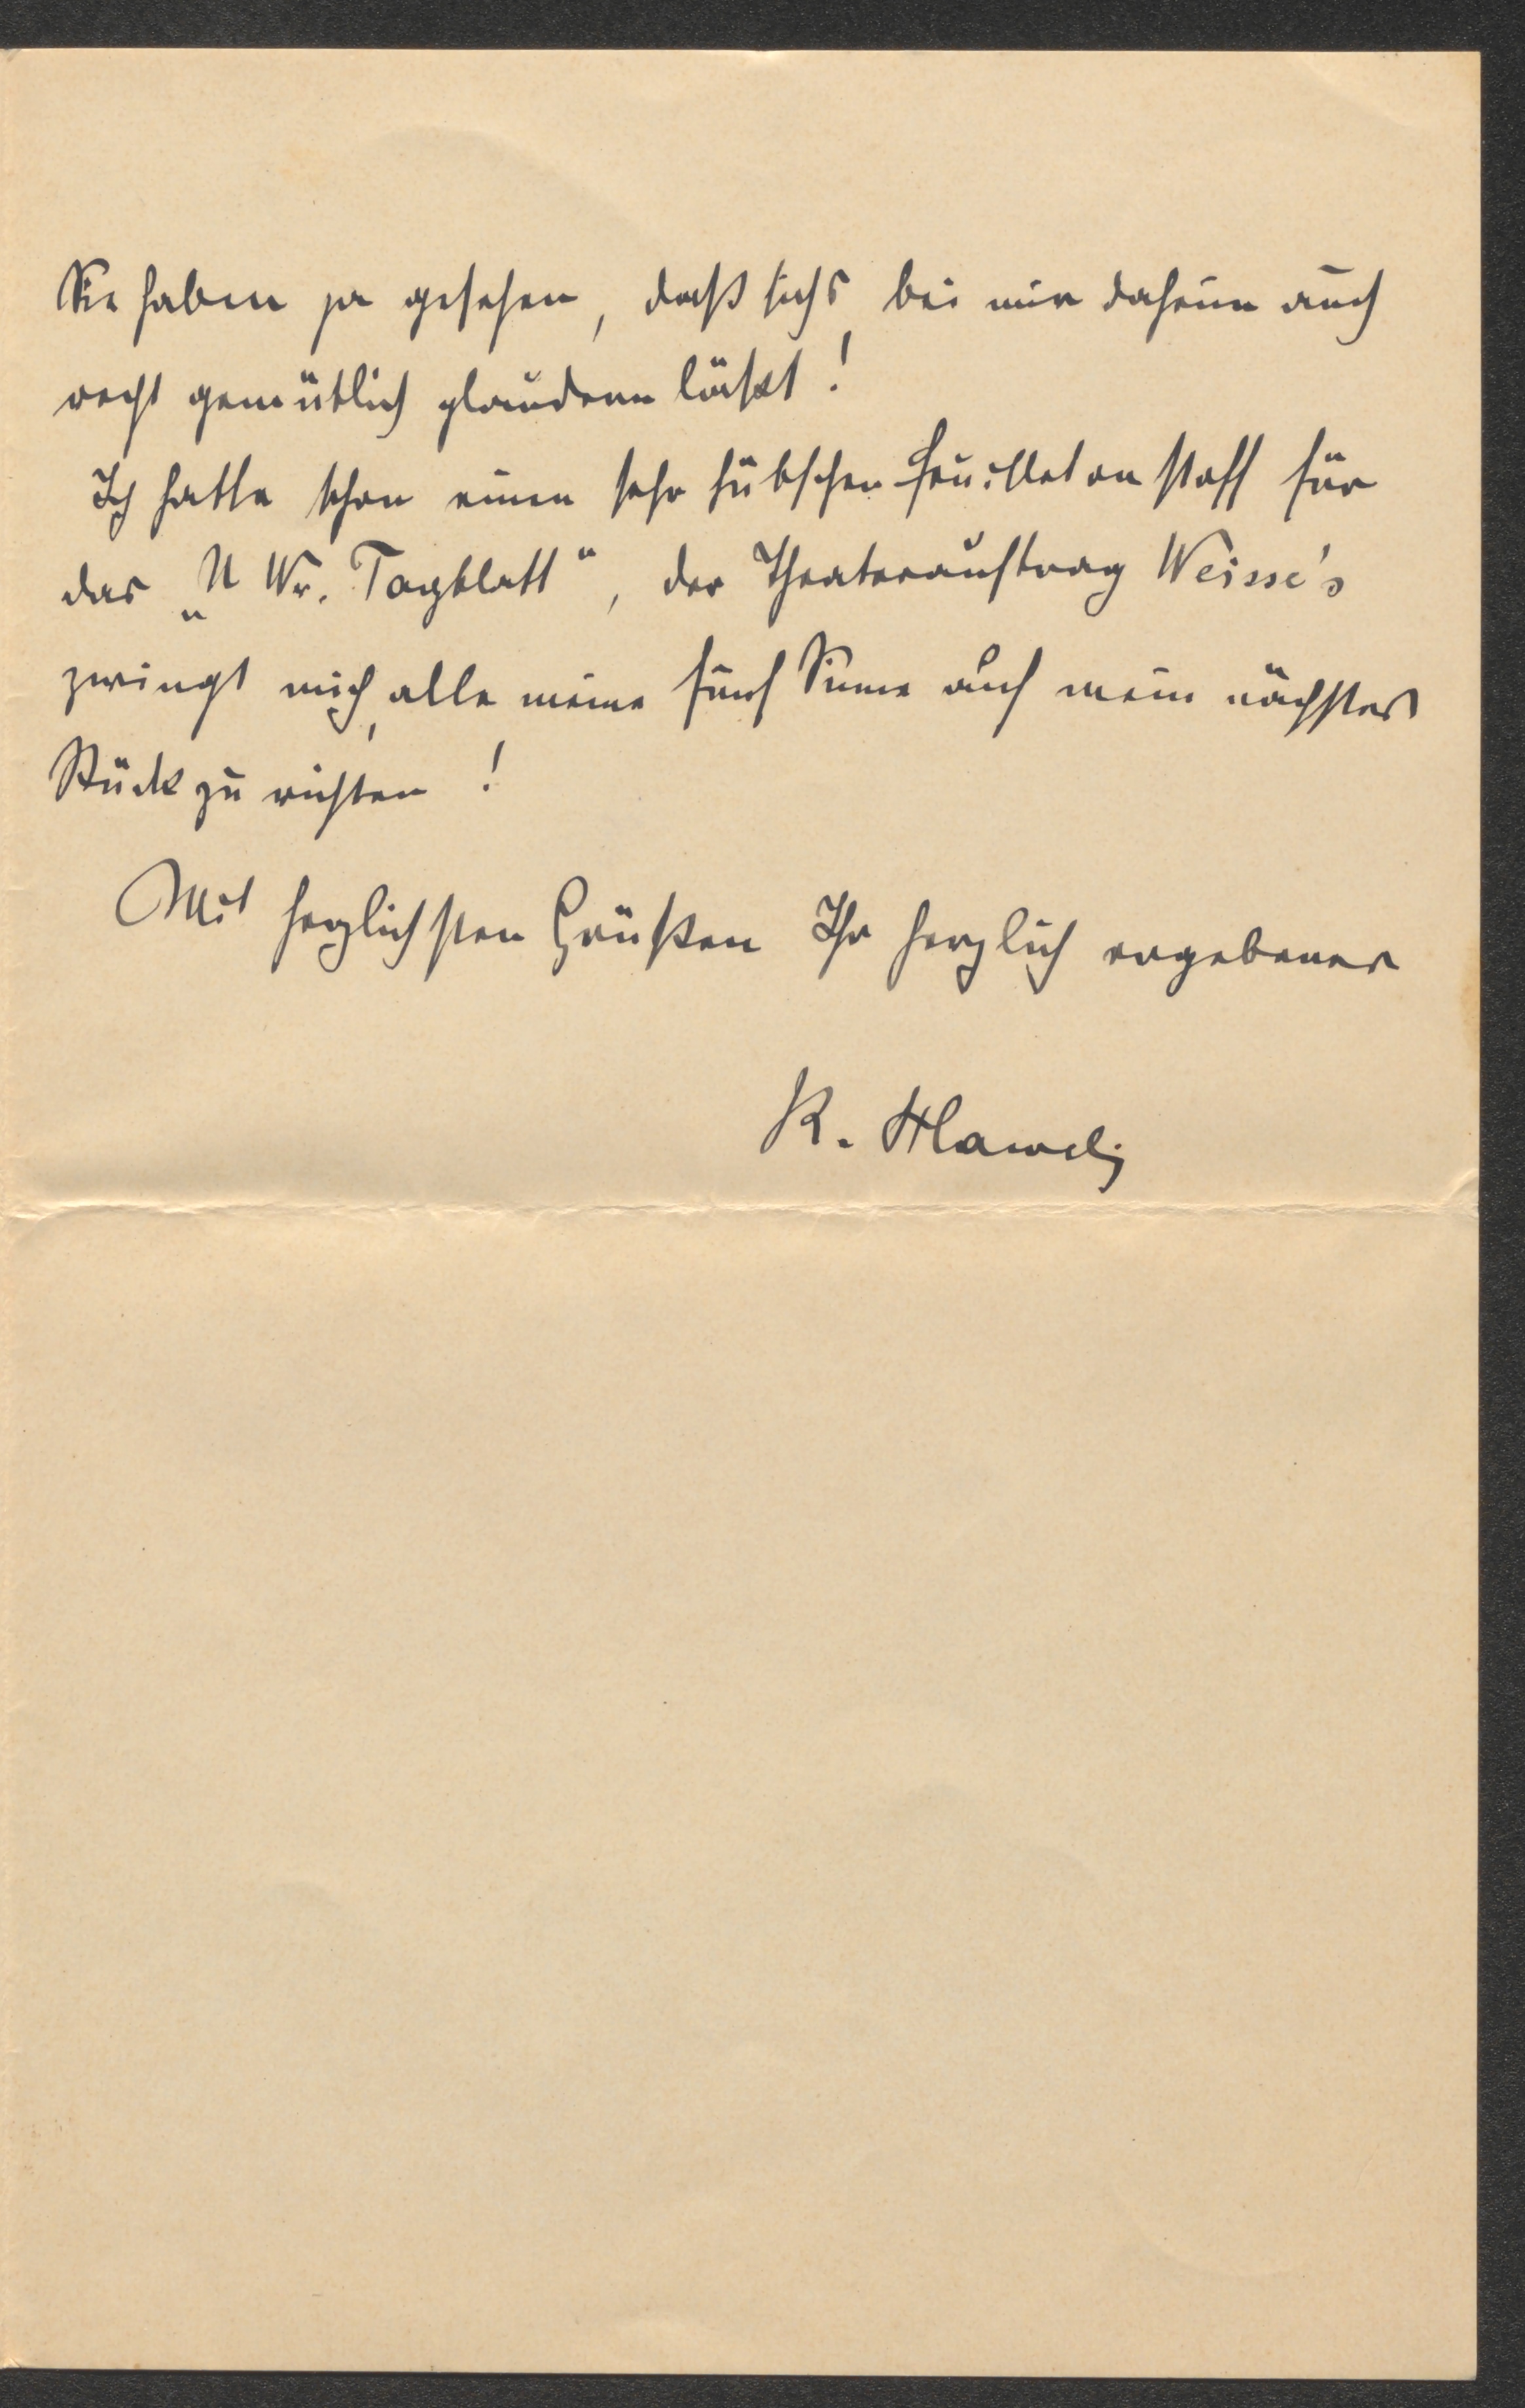 Sie haben ja gesehen, daß sichs bei mir daheim auch
recht gemütlich plaudern läßt!
Ich hatte schon einen sehr hübschen Feuilletonstoff für
das „N Wr. Tagblatt“, der Theaterauftrag Weisse's
zwingt mich, alle meine fünf Sinne auf mein nächstes
Stück zu richten!
Mit herzlichsten Grüßen Ihr herzlich ergebener
K.